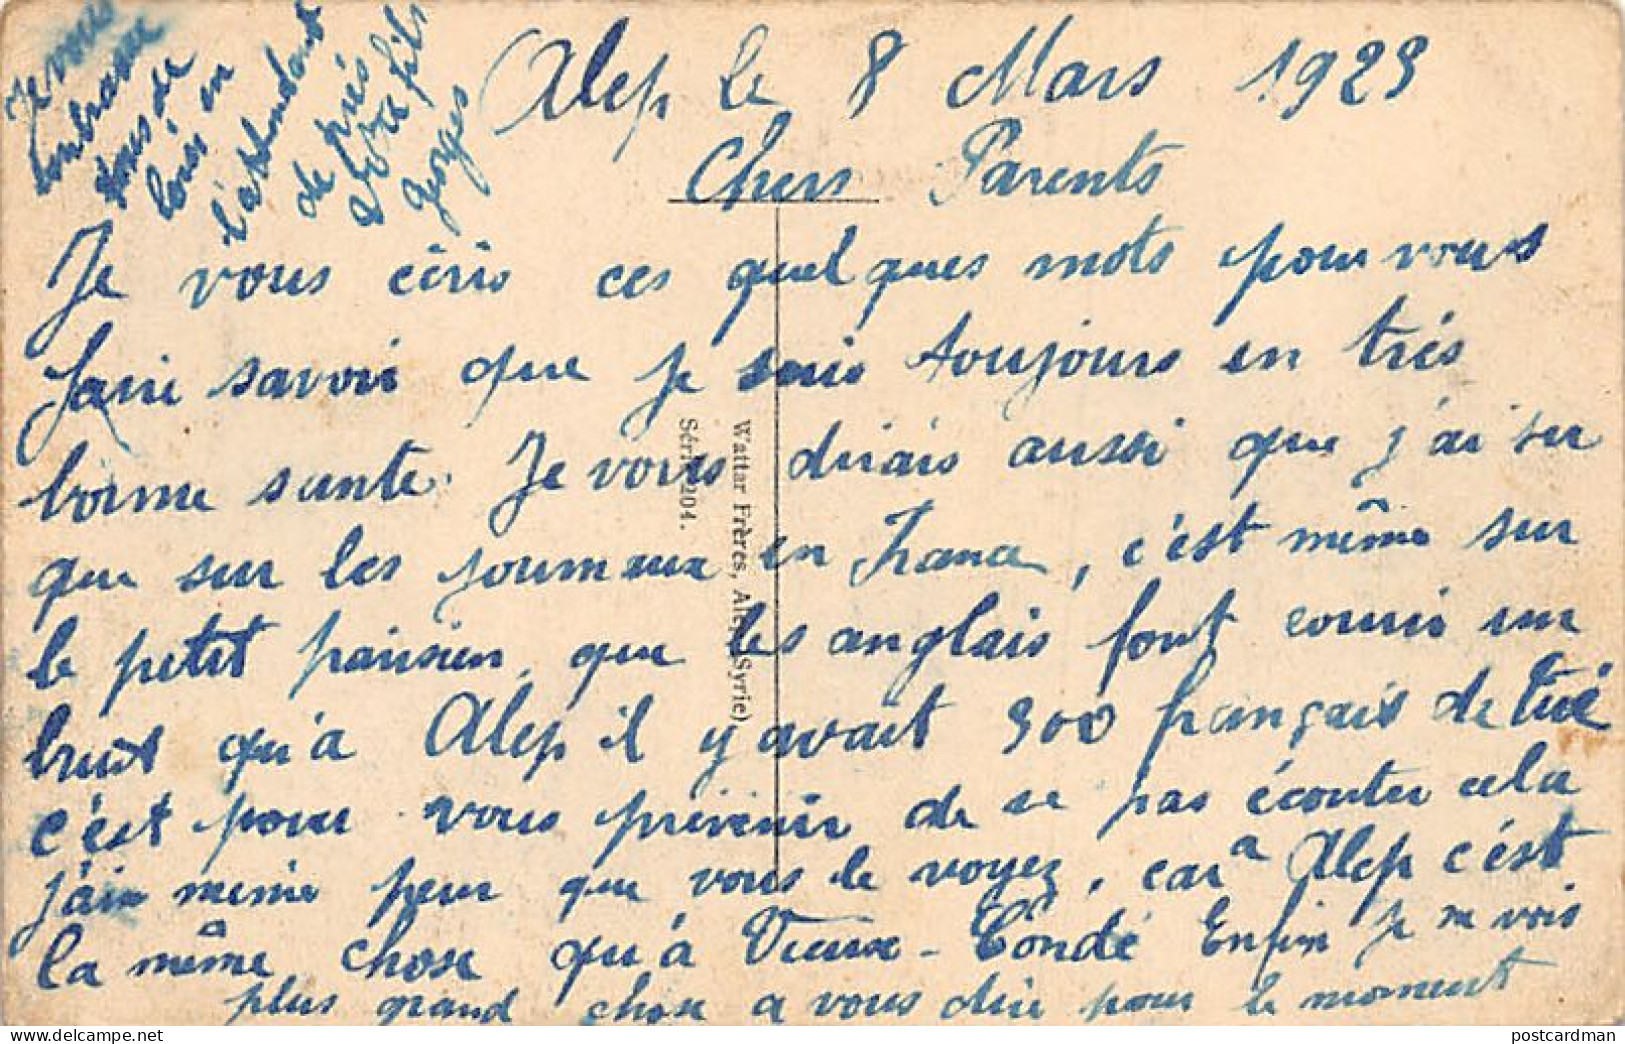 Alep le 8 Mars 1923
Chers Parents
Je vous écris ces quelques mots pour vous
faire savoir que je suis toujours en très
bonne sante. Je vous dirais aussi que j'ai su
que sur les journeaux en France, c'est même sur
le petit parisien, que les anglais font courrir un
bruit qu'à Alep il y avait 300 français de tué
c'est pour vous prévenir de ne pas écouter cela
j'ai même peur que vous le voyez, car a Alep c'est
la même chose qu'à Vieux-Condé Enfin je ne vois
plus grand chose a vous dire pour le moment
Je vous
embrasse
tous de
loin en
l'attendant
de près
Votre fils
Georges
Wattar Frères, Alep (Syrie)
Série 204.
postcardman